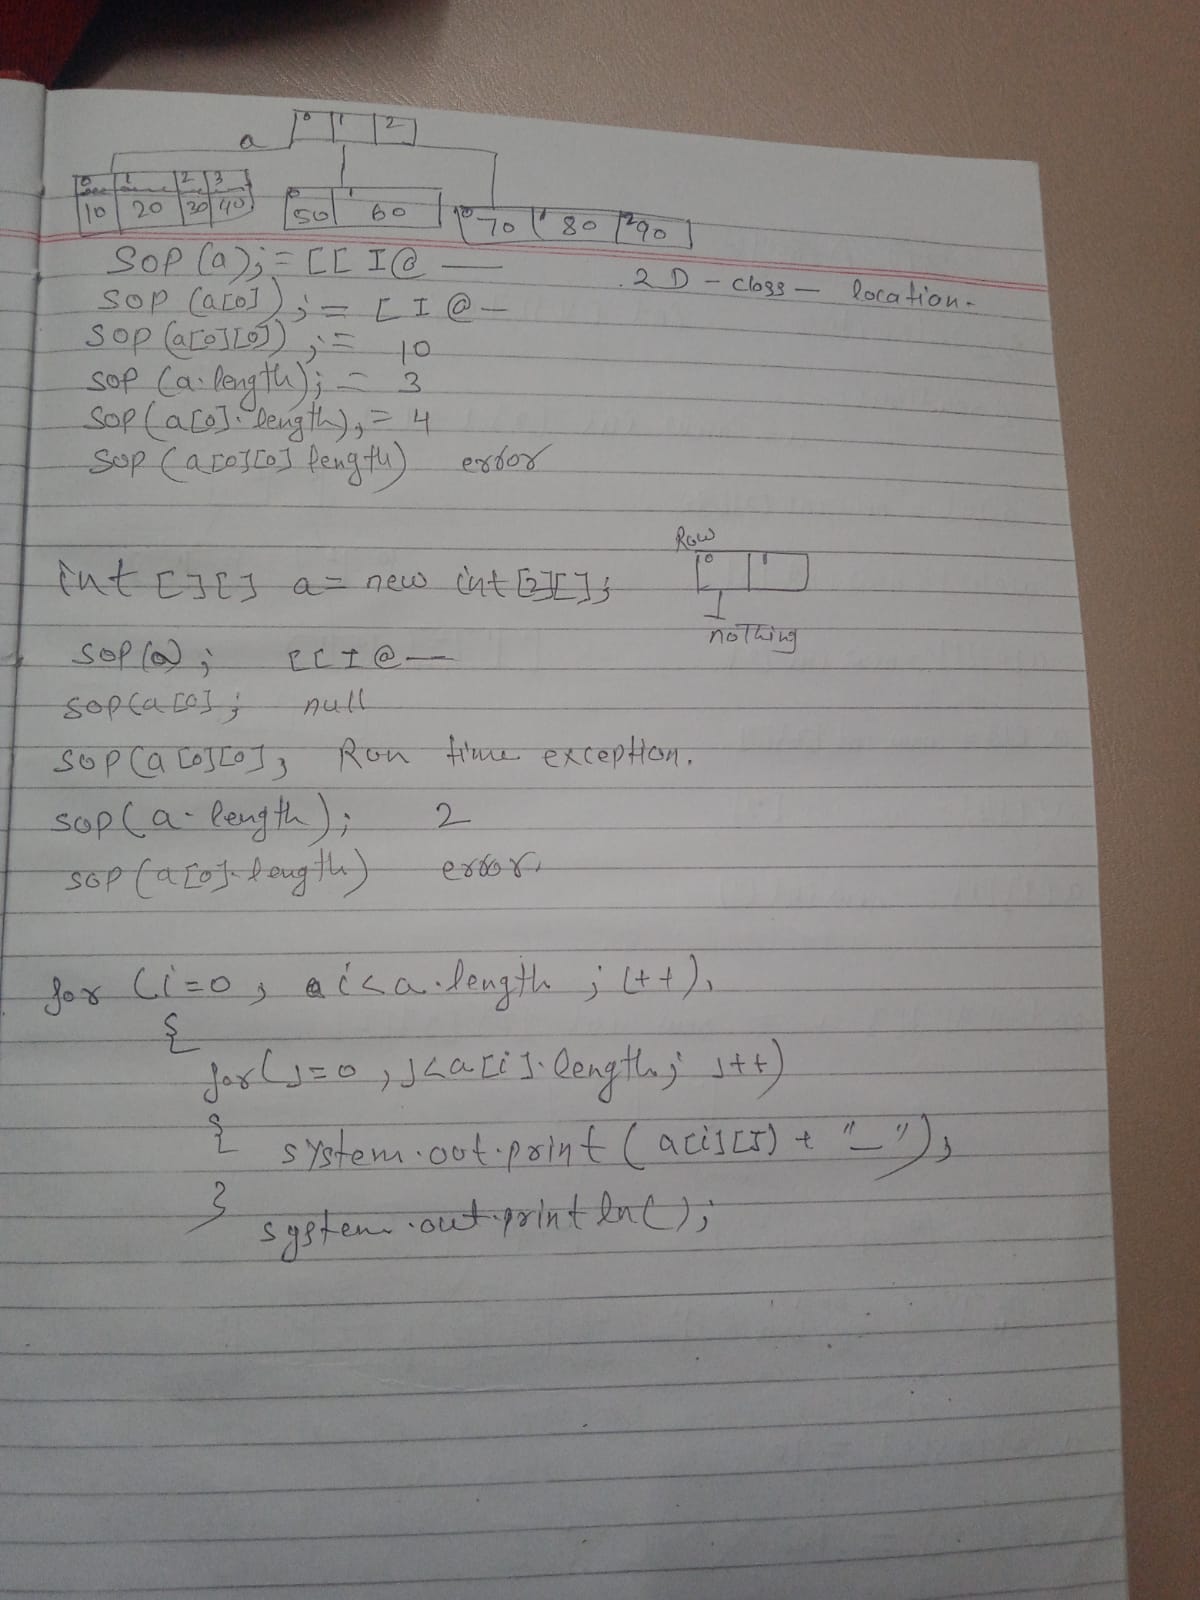 a 0 1 2
0 1 2 3
10 20 30 40
0 1
50 60
0 1 2
70 80 90
SOP (a); = [[ I@ —
.2 D - class — location.
SOP (a[0]); = [ I @ —
SOP (a[0][0]); = 10
SOP (a.length); = 3
SOP (a[0].length); = 4
SOP (a[0][0] length) error
Row
0 1
int [][] a = new int [2][];
nothing
SOP (a); [[ I @ —
SOP (a [0]; null
SOP (a [0][0]; Run time exception.
SOP (a. length); 2
SOP (a[0].length) error.
for (i=0; i<a.length; i++)
{
for(j=0; j<a[i].length; j++)
{ system.out.print (a[i][J) + "_");
}
system.out.println();